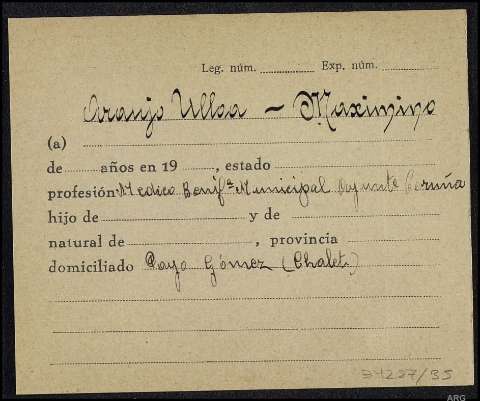 Leg. núm. Exp. núm.
Araujo Ulloa - Maximino
(a)
de años en 19 , estado
profesión Medico Benifª Municipal Ayuntº Coruña
hijo de y de
natural de , provincia
domiciliado Payo Gómez (Chalet)
31227/35
ARG